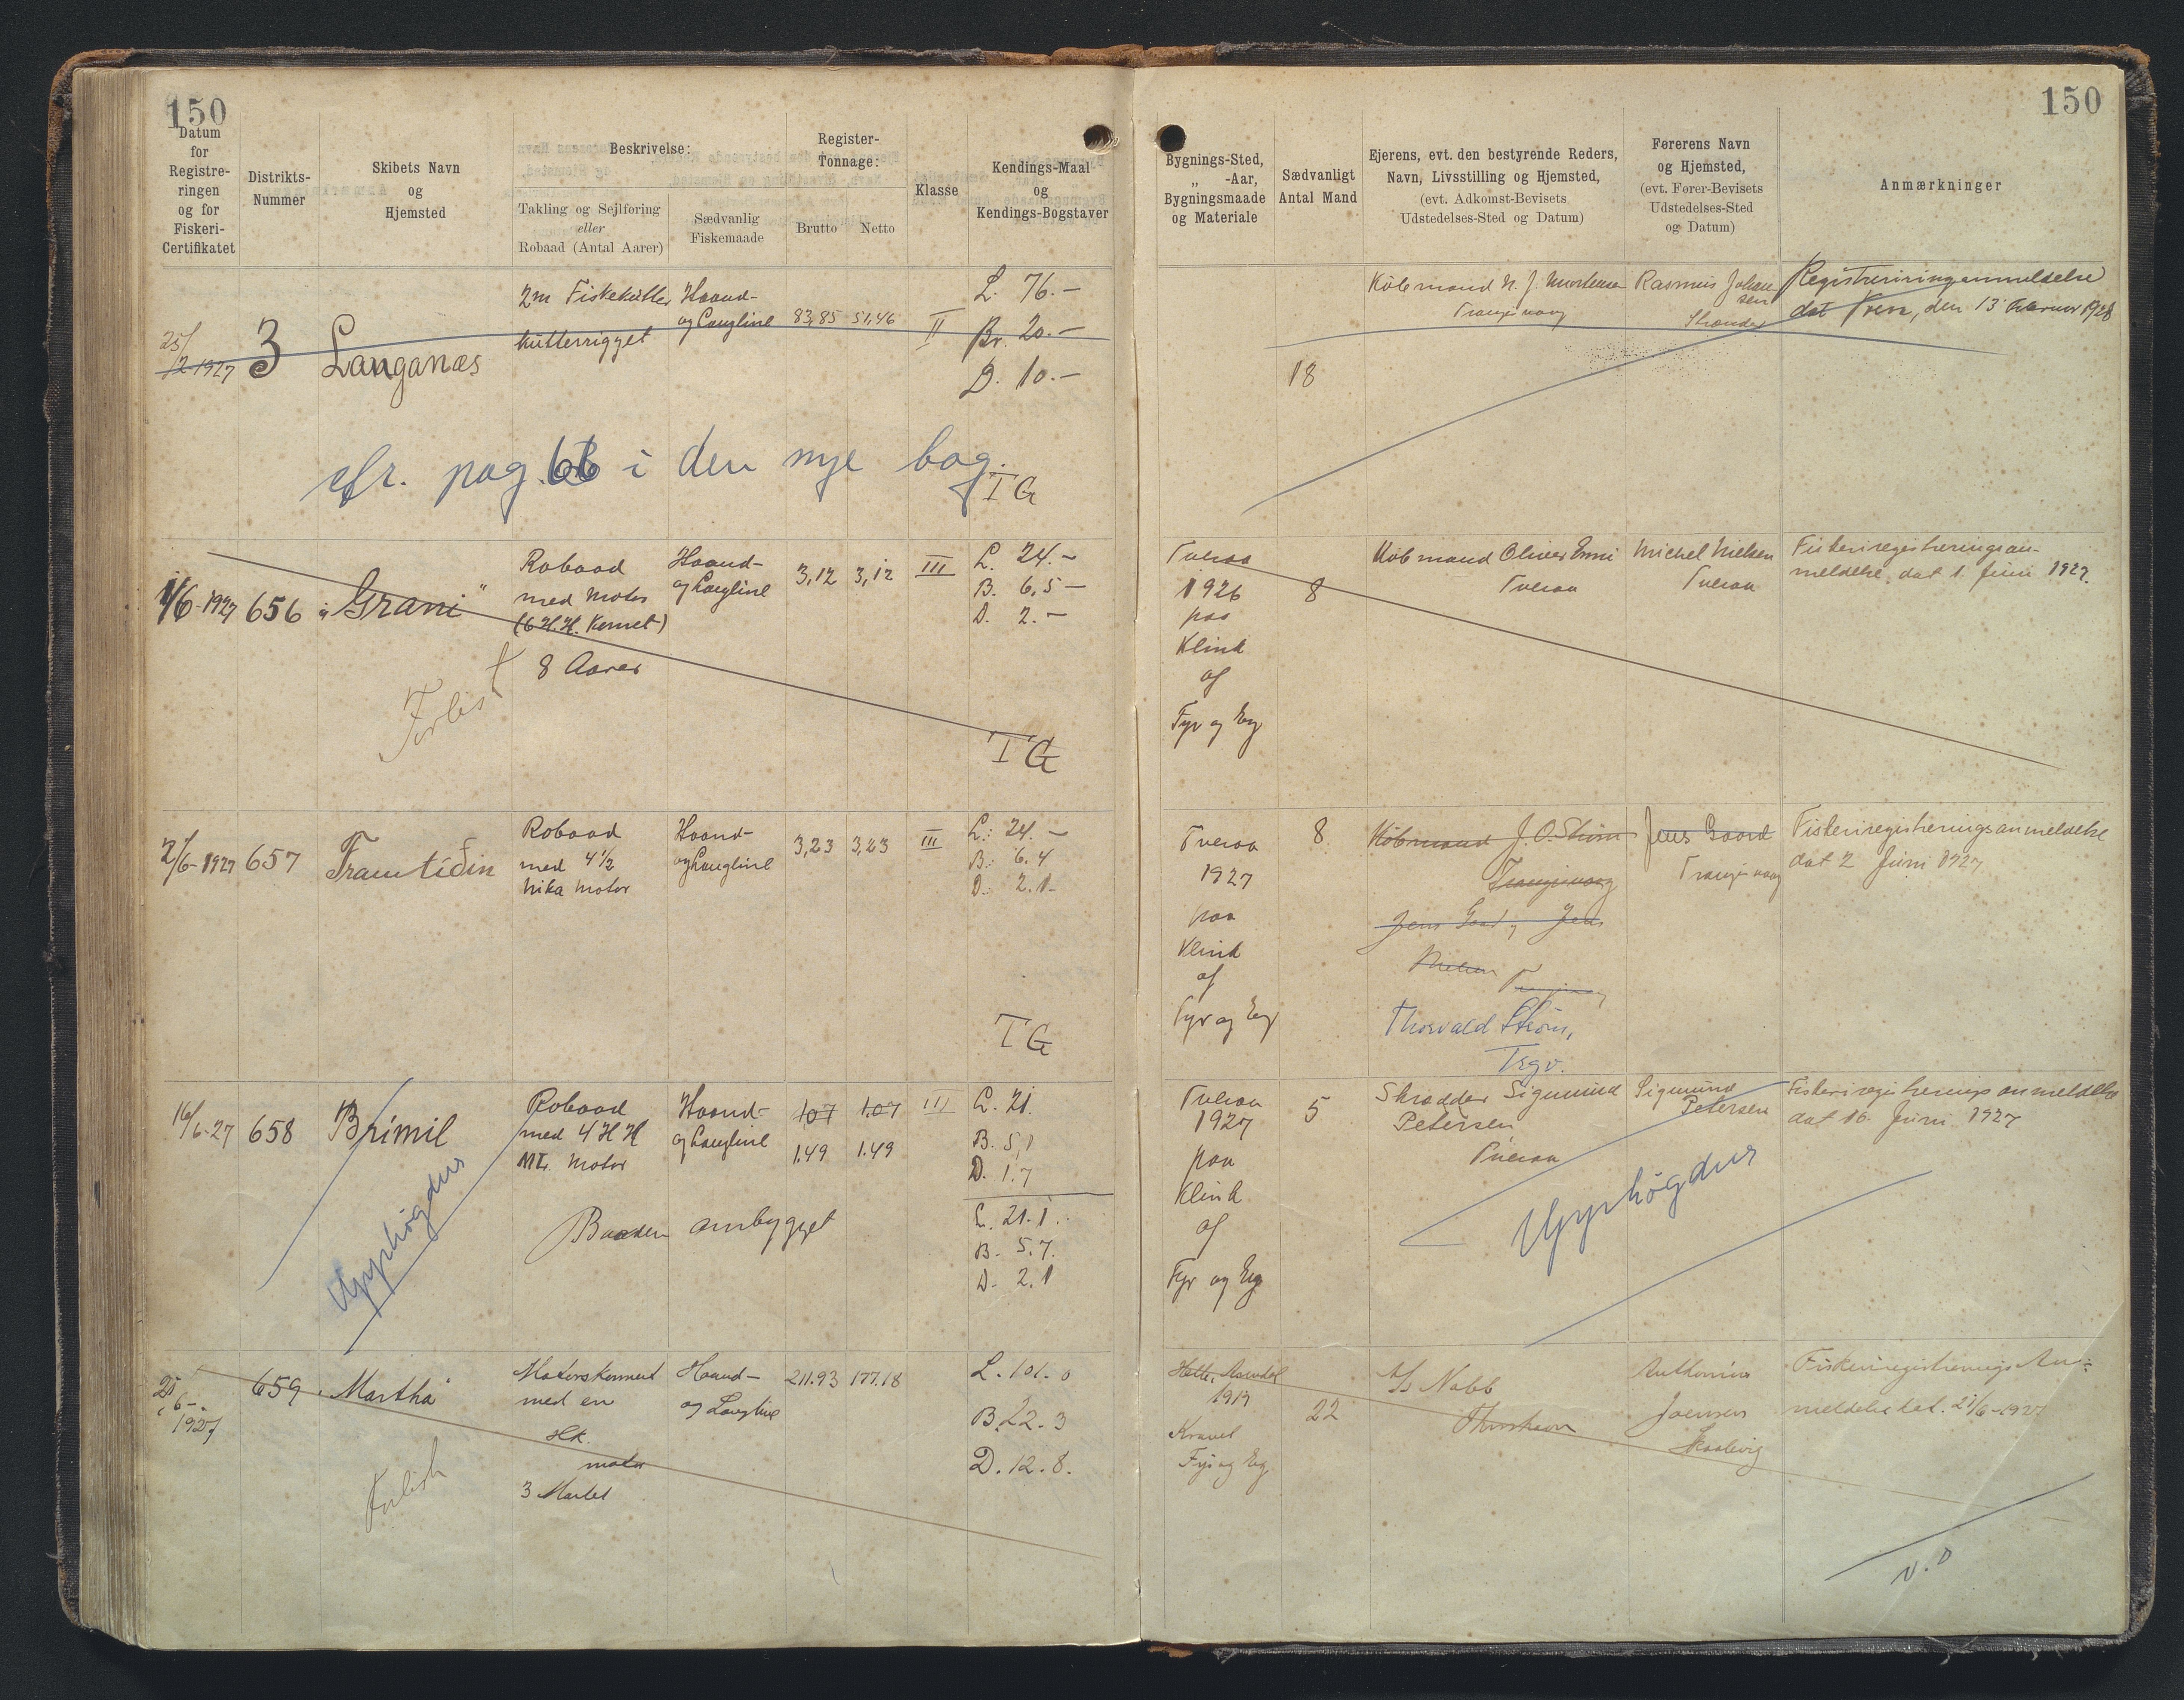 150
150
Datum
for
Registre-
ringen
og for
Fiskeri-
Certifikatet
Distrikts-
Nummer
Skibets Navn
og
Hjemsted
Beskrivelse:
Takling og Sejlføring
eller
Robaad (Antal Aarer)
Sædvanlig
Fiskemaade
Register-
Tonnage:
Brutto Netto
Klasse
Kendings-Maal
og
Kendings-Bogstaver
Bygnings-Sted,
„ -Aar,
Bygningsmaade
og Materiale
Sædvanligt
Antal Mand
Ejerens, evt. den bestyrende Reders,
Navn, Livsstilling og Hjemsted,
(evt. Adkomst-Bevisets
Udstedelses-Sted og Datum)
Førerens Navn
og Hjemsted,
(evt. Fører-Bevisets
Udstedelses-Sted
og Datum)
Anmærkninger
25/
2-1927
3
Langanæs
2m Fiskekutter
kutterrigget
Haand-
og Langline
83,85 51,46
II
L. 76.-
Br. 20.-
D. 10.-
18
Købmand N. J. Mortensen
Trangisvaag
Rasmus Johan
sen
Strender
Registreriringsanmeldelse
dat Tveraa, den 13 Februar 1928
cfr. pag. 66 i den nye bog.
TG
1/6-1927
656
"Grani"
Robaad
med Motor
(6 H.H. Kermet)
8 Aarer
Haand-
og Langline
3,12 3,12
III
L. 24.-
B. 6,5-
D. 2.-
Forlist
TG
Tveraa
1926
paa
Klink
af
Fyr og Eg
8
Købmand Oliver Enni
Tveraa
Michel Nielsen
Tveraa
Fiskeriregistreringsan-
meldelse, dat 1. Juni 1927.
2/6-1927
657
Framtíðin
Robaad
med 4½
Nika Motor
Haand-
og Langline
3,23 3,23
III
L. 24.-
B. 6.4
D. 2.1-
TG
Tveraa
1927
paa
Klink
af
Fyr og Eg
8.
Købmand J. O. Strøm
Trangisvaag
Jens Gaard, Jens
Nielsen
Thorvald Strøm,
Trgv.
Jens Gaard
Trangisvaag
Fiskeriregistreringsanmeldelse
dat 2 Juni 1927
16/6-27
658
Brimil
Robaad
med 4 H H
Mk. Motor
Haand-
og Langline
1.07 1.07
1.49 1.49
III
L. 21.
B. 5,1
D. 1.7
Baaden ombygget
L. 21.1
B. 5.7.
D. 2.1
Upphögdur
Tveraa
1927
paa
Klink
af
Fyr og Eg
5
Skrædder Sigmund
Petersen
Tveraa
Sigmund
Petersen
Fiskeriregistrerings anmeldelse
dat 16. Juni 1927
Upphögdur
21/
6-
1927
659
"Martha"
Motorskonnert
med en
HK.
motor
3 Mastet
Haand-
og Langline
211.93 177.18
L. 101.0
B. 22.3
D. 12.8.
Forlist
1919
Kravel
Fyr og Eg
22
A/s Nabb
Thorshavn
Joensen
Skaalevig
Fiskeriregistrerings An-
meldelse dat. 21/6-1927